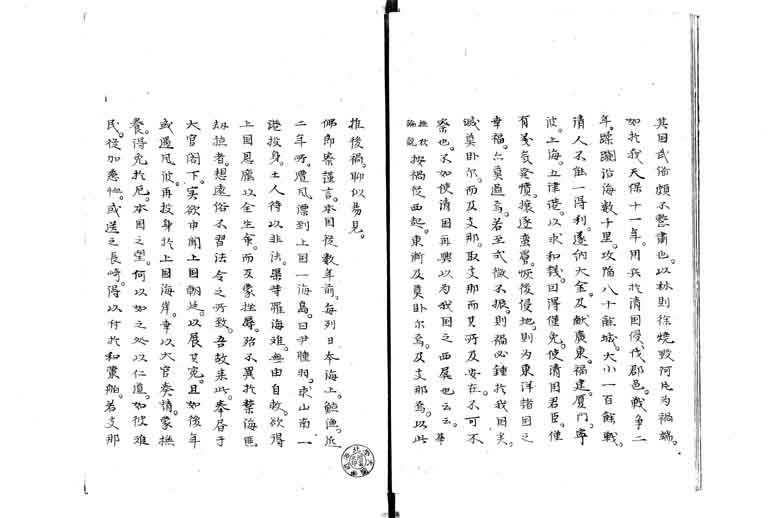 其国武備頗不整肅也。以林則徐燒毀阿片为禍端。
如於我天保十一年。用兵於清国侵伐郡邑。戰争二
年。蹂躙沿海數十里。攻陷八十餘城。大小一百餘戰。
清人不能一得利。遂納大金及献廣東。福建。厦門。寧
波。上海。五津港。以求和錢。因得僅免。使清国君臣。僅
有義気発憤。攘逐蛮。恢後侵地。則为東洋諸国之
幸福。莫過焉。若至微不振。則禍必鍾於我国矣
莫卧尔。而及支那。取支那而其所及安在。不可不
察也。不如使清国再興以为我国之西屏也云云。
按禍從西起。東漸及莫卧尔焉。及支那焉。以此
推後禍。聊似易見。
佛郎察謹言。本国從數年前。每列日本海上。鯨漁。近
二年所。遭風漂到上国一海島。曰尹腫羽。求山南一
港投身。土人待以非法。果等罹海难。無由自救。欲得
上国恩蔭以全生命。而反蒙挫辱。殆不異於繫海匪
劫掠者。想遠俗不習法令之所致。吾故来此。奉于
大官閣下。实欲申聞上国朝廷。以展其冤。且如後年
或遇风波。再投身於上国海岸。幸以大官奏請。蒙撫
養。得免於厄。本国之望。何以如之。处以仁慮。如彼难
民。從加恤。或送之長崎。得以付於和蘭舶。若支那